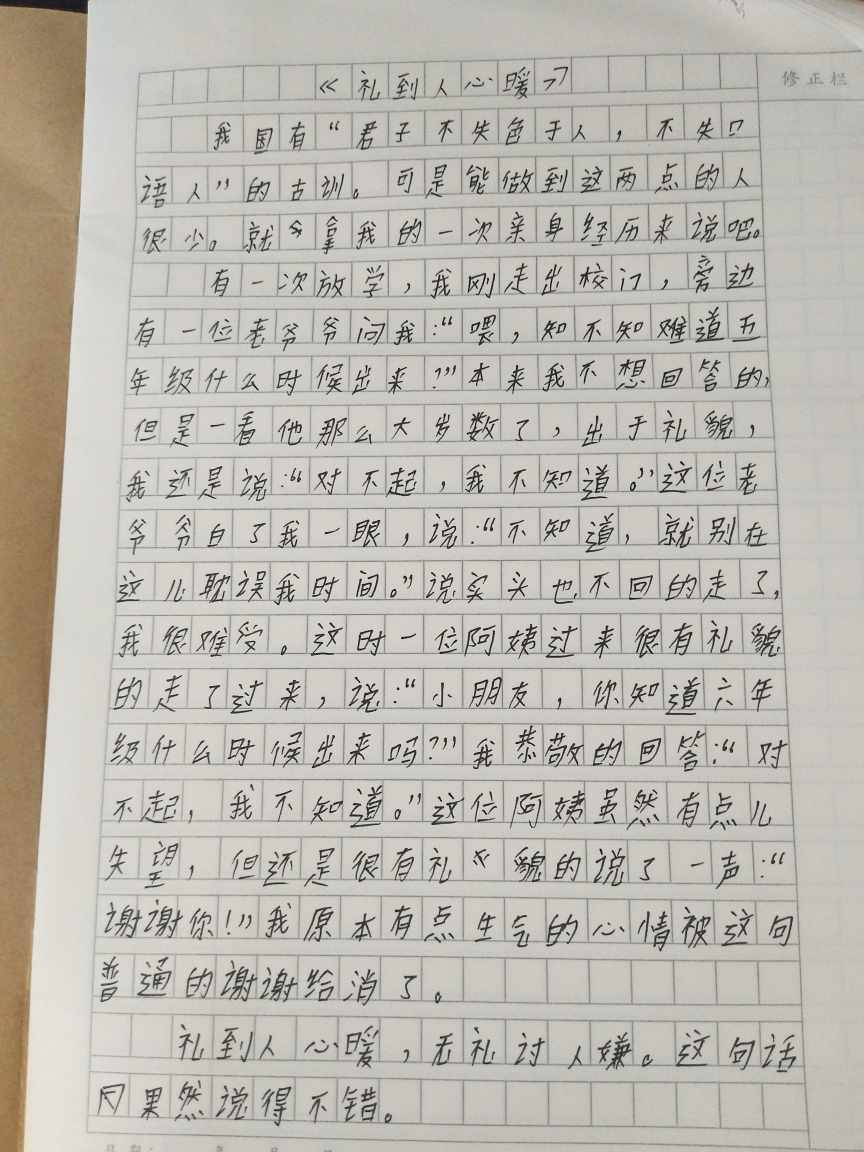 《礼到人心暖》
修正栏
我国有“君子不失色于人，不失口
语人”的古训。可是能做到这两点的人
很少。就拿我的一次亲身经历来说吧。
有一次放学，我刚走出校门，旁边
有一位老爷爷问我：“喂，知不知难道五
年级什么时候出来？”本来我不想回答的，
但是一看他那么大岁数了，出于礼貌，
我还是说：“对不起，我不知道。”这位老
爷爷白了我一眼，说：“不知道，就别在
这儿耽误我时间。”说实头也不回的走了，
我很难受。这时一位阿姨过来很有礼貌
的走了过来，说：“小朋友，你知道六年
级什么时候出来吗？”我恭敬的回答：“对
不起，我不知道。”这位阿姨虽然有点儿
失望，但还是很有礼貌的说了一声：“
谢谢你！”我原本有点生气的心情被这句
普通的谢谢给消了。
礼到人心暖，无礼讨人嫌。这句话
果然说得不错。